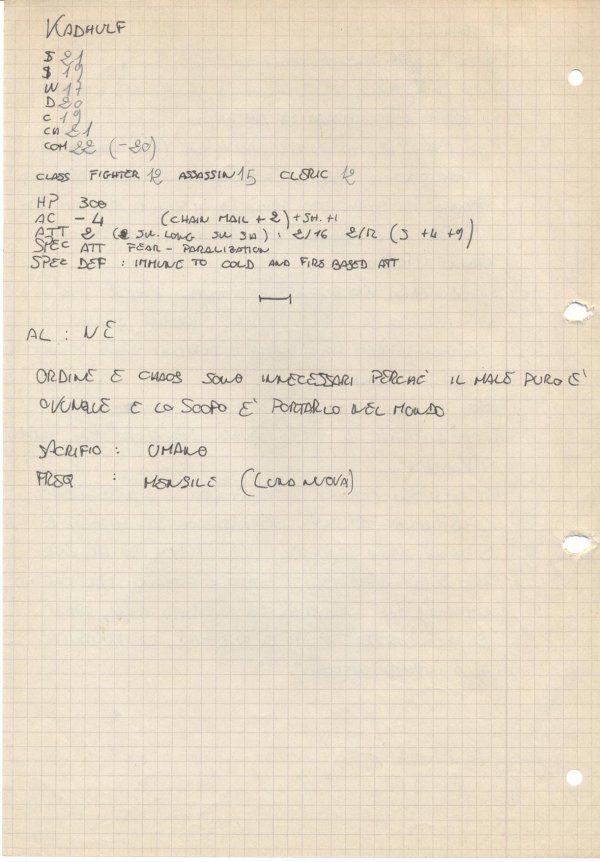 KADHULF
S 21
I 19
W 17
D 20
C 19
CH 21
COM 22 (-20)
CLASS FIGHTER 12 ASSASSIN 15 CLERIC 12
HP 300
AC -4 (CHAIN MAIL +2) + SH. +1
ATT 2 (SW. LONG SW SH) : 2/16 2/12 (S +4 +9)
SPEC ATT FEAR - PARALIZATION
SPEC DEF : IMMUNE TO COLD AND FIRE BASED ATT
AL : NE
ORDINE E CHAOS SONO INNECESSARI PERCHE' IL MALE PURO E'
OVUNQUE E LO SCOPO E' PORTARLO NEL MONDO
SACRIFIO : UMANO
FREQ : MENSILE (LUNA NUOVA)